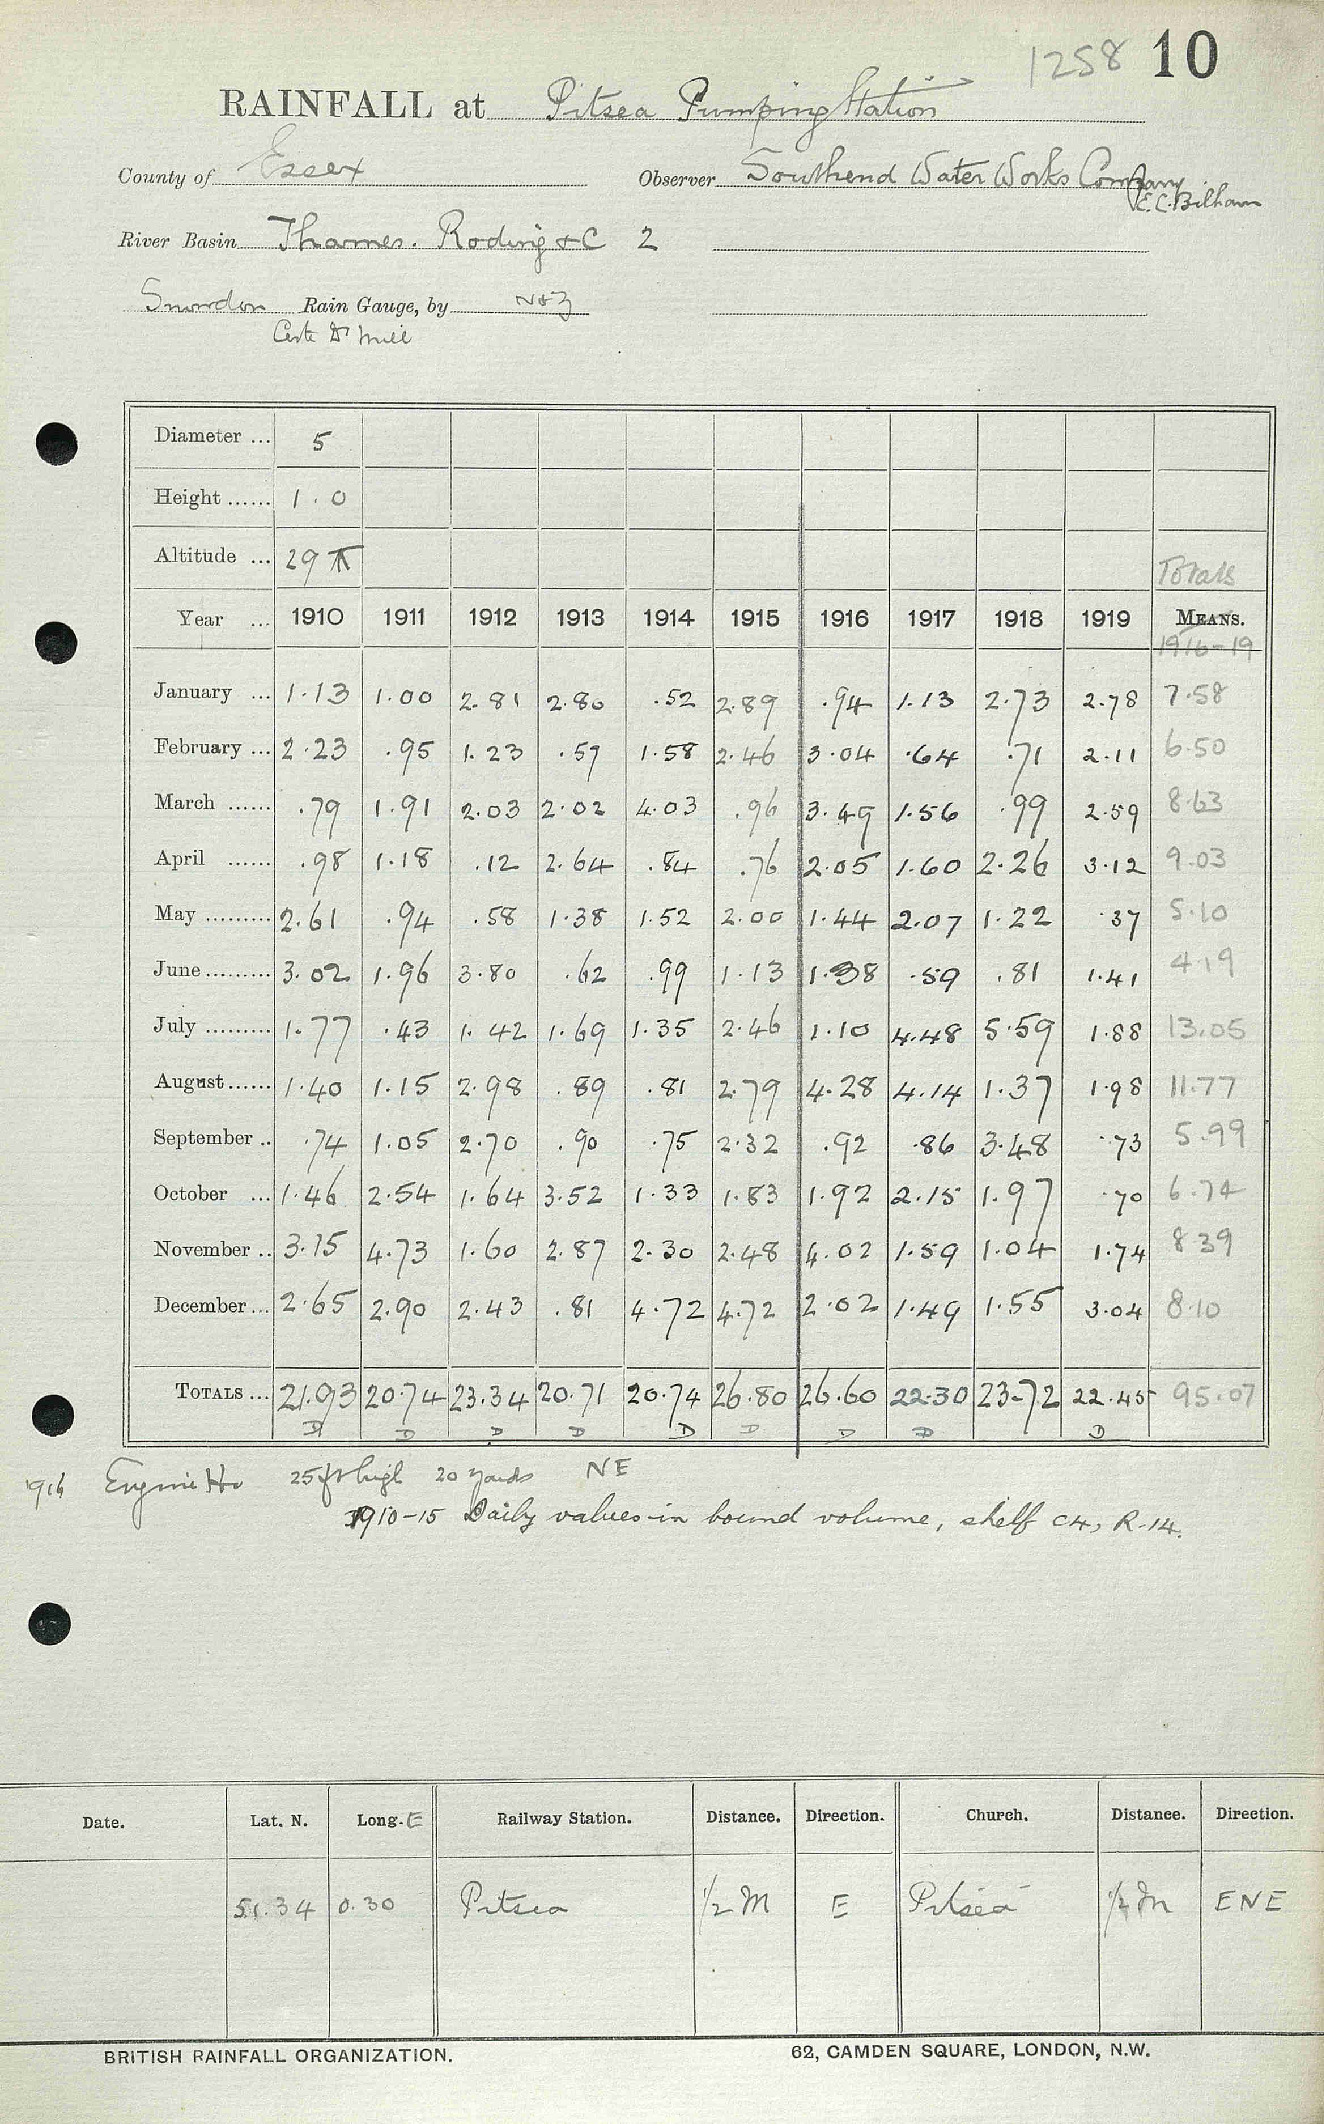 1258 10
RAINFALL at Pitsea Pumping Station
County of Essex Observer Southend Water Works Company
(E.C. Bilham
River Basin Thames. Roding &C 2
Snowdon Rain Gauge, by
Mill
Diameter ... 5
Height ...... 1.0
Altitude ... 29
Totals
Year ... 1910 1911 1912 1913 1914 1915 1916 1917 1918 1919 MEANS.
1916-19
January ... 1.13 1.00 2.81 2.80 .52 2.89 .94 1.13 2.73 2.78 7.58
February ... 2.23 .95 1.23 .59 1.58 2.46 3.04 .64 .71 2.11 6.50
March ...... .79 1.91 2.03 2.02 4.03 .96 3.49 1.56 .99 2.59 8.63
April ...... .98 1.18 .12 2.64 .84 .76 2.05 1.60 2.26 3.12 9.03
May ......... 2.61 .94 .58 1.38 1.52 2.00 1.44 2.07 1.22 .37 5.10
June ......... 3.02 1.96 3.80 .62 .99 1.13 1.38 .59 .81 1.41 4.19
July ......... 1.77 .43 1.42 1.69 1.35 2.46 1.10 4.48 5.59 1.88 13.05
August ...... 1.40 1.15 2.98 .89 .81 2.79 4.28 4.14 1.37 1.98 11.77
September .. .74 1.05 2.70 .90 .75 2.32 .92 .86 3.48 .73 5.99
October ... 1.46 2.54 1.64 3.52 1.33 1.83 1.92 2.15 1.97 .70 6.74
November .. 3.15 4.73 1.60 2.87 2.30 2.48 4.02 1.59 1.04 1.74 8.39
December ... 2.65 2.90 2.43 .81 4.72 4.72 2.02 1.49 1.55 3.04 8.10
TOTALS ... 21.93 20.74 23.34 20.71 20.74 26.80 26.60 22.30 23.72 22.45 95.07
D D D D D D D D D
1916 Engine Ho 25 ft high 20 yards NE
1910-15 Daily values in bound volume, shelf C4, R.14.
Date. Lat. N. Long. E Railway Station. Distance. Direction. Church. Distance. Direction.
51.34 0.30 Pitsea 1/2 M E Pitsea 1/2 m ENE
BRITISH RAINFALL ORGANIZATION. 62, CAMDEN SQUARE, LONDON, N.W.